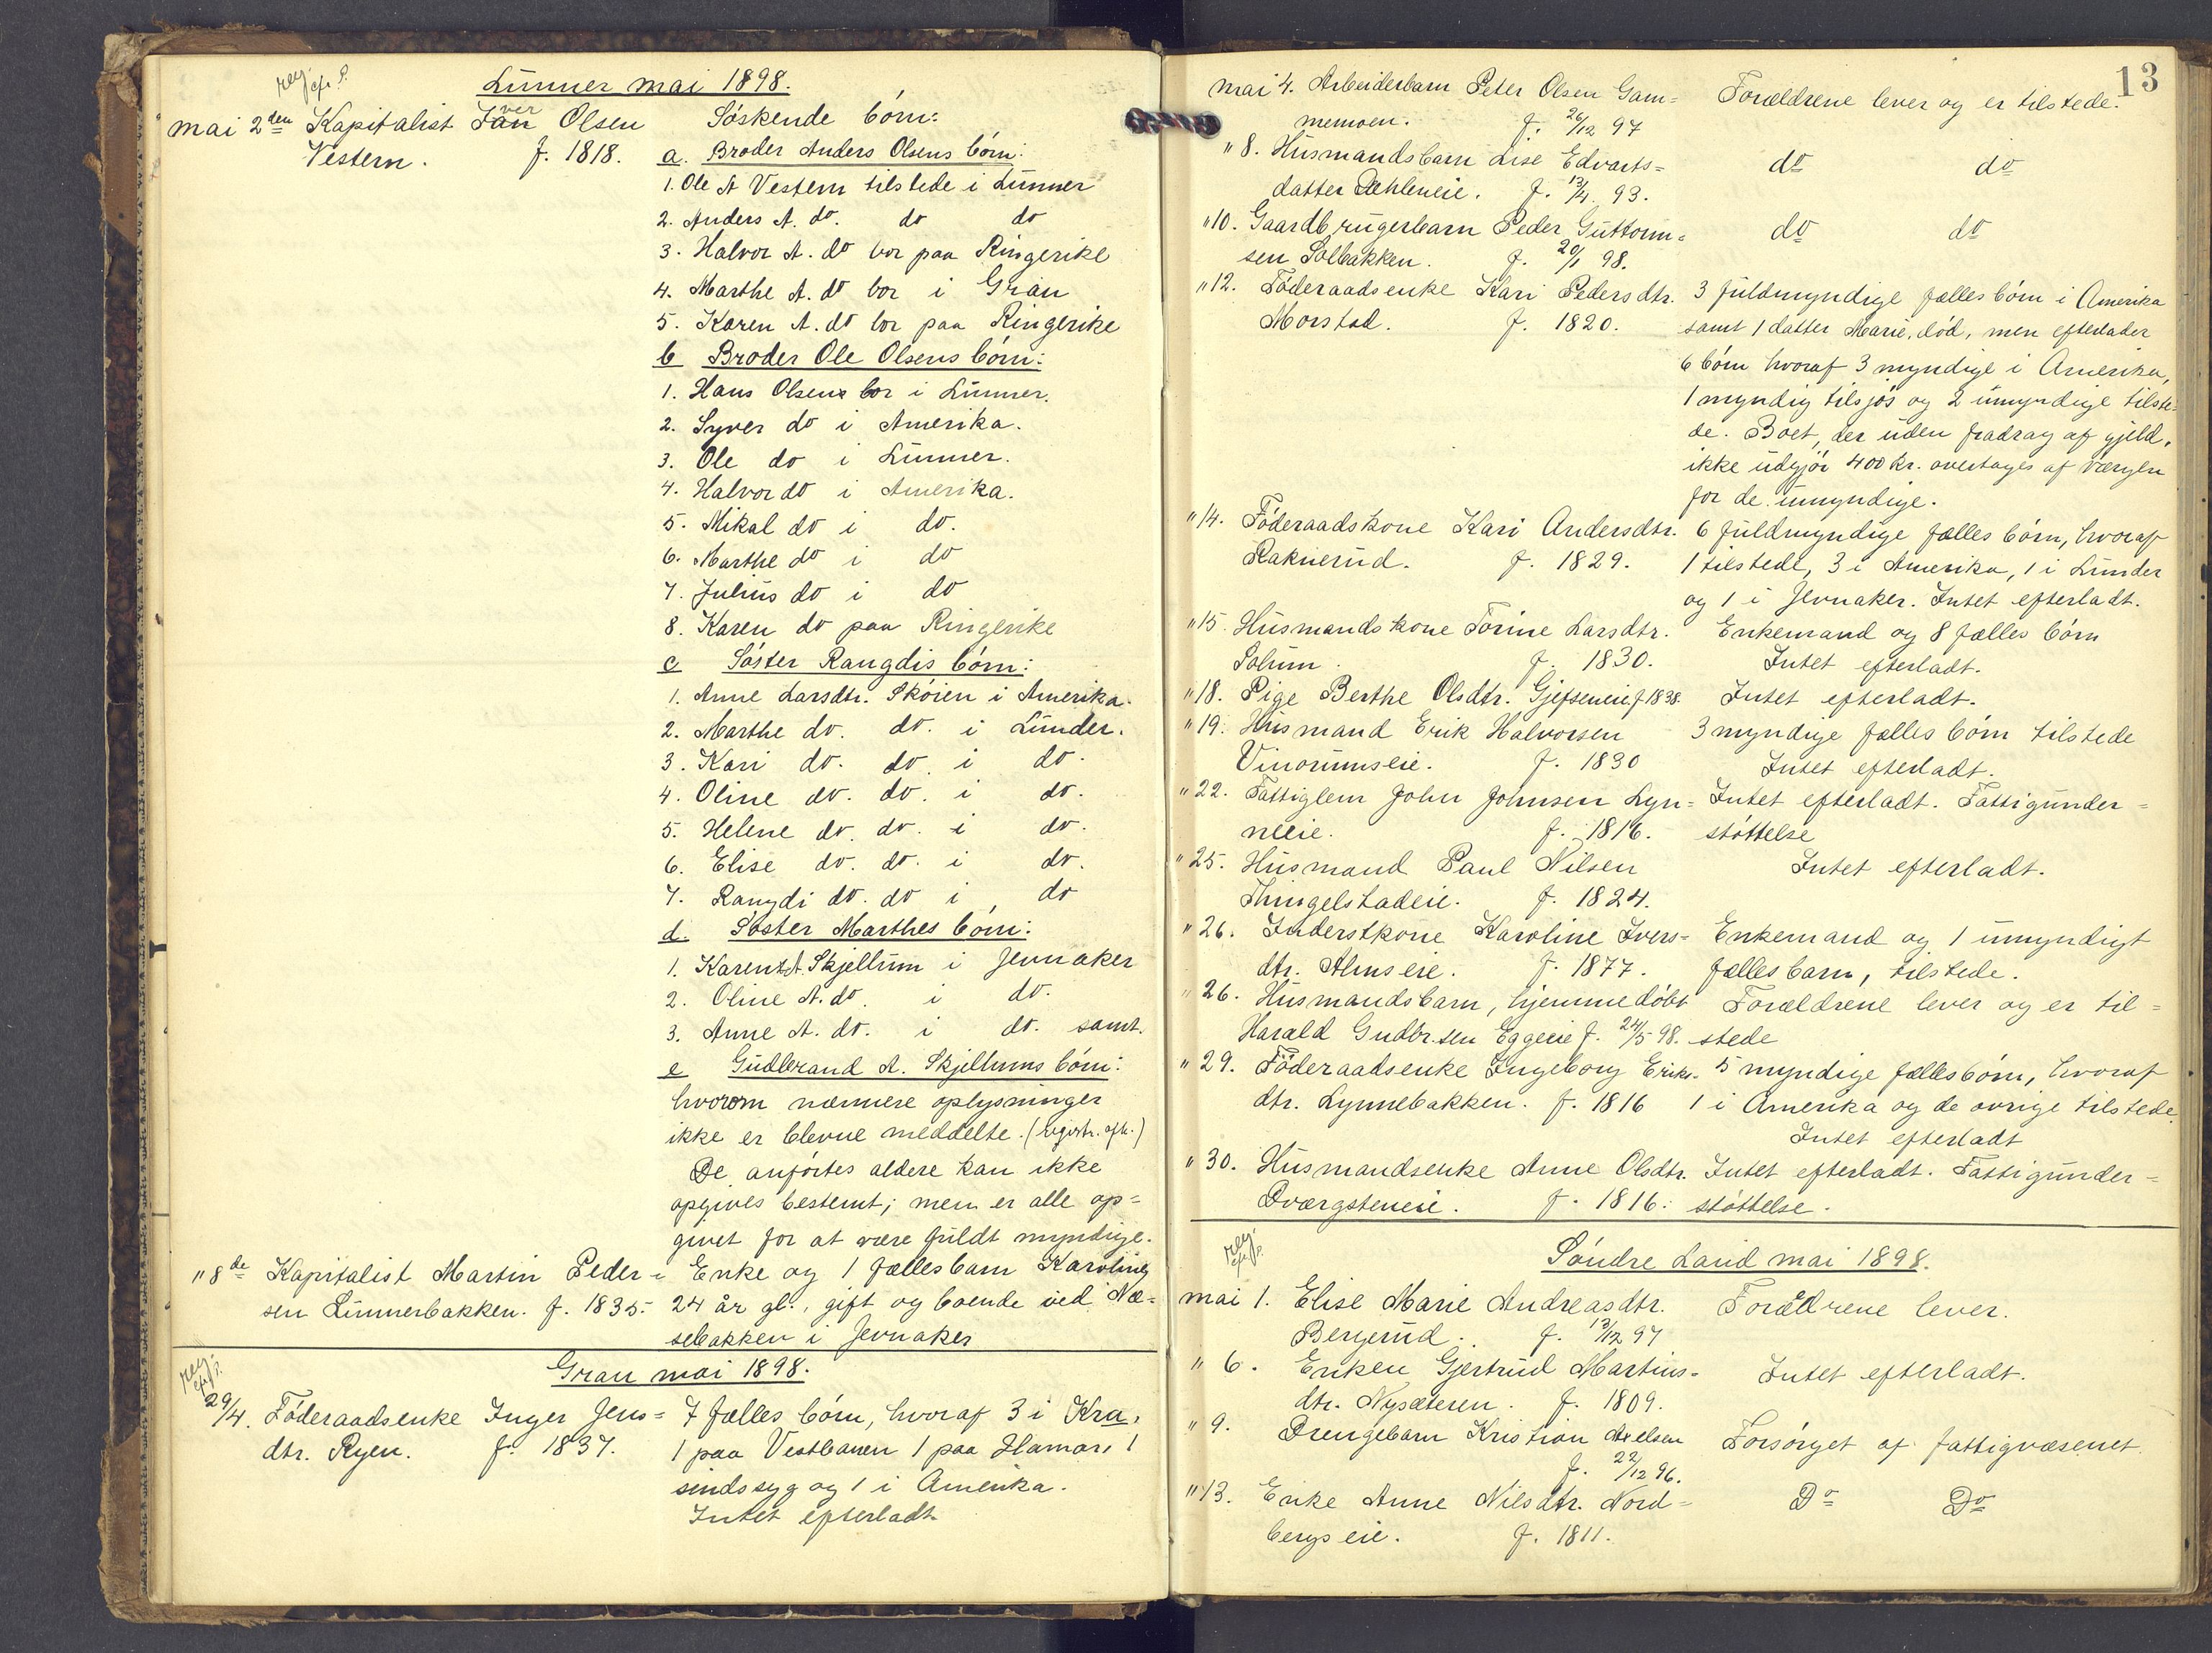 Lunner mai 1898.
mai 2den Kapitalist Iver Olsen
Vestern. f. 1818.
Söskende börn:
a. Broder Anders Olsens börn:
1. Ole A Vestern tilstede i Lunner
2. Anders A. do. do do
3. Halvor A. do bor paa Ringerike
4. Marthe A. do bor i Gran
5. Karen A. do bor paa Ringerike
b Broder Ole Olsens börn:
1. Hans Olsen bor i Lunner.
2. Syver do i Amerika.
3. Ole do i Lunner.
4. Halvor do i Amerika.
5. Mikal do i do.
6. Marthe do i do
7. Julius do i do
8. Karen do paa Ringerike
c Söster Rangdis börn:
1. Anne Larsdtr. Sköien i Amerika.
2. Marthe do. do. i Lunder.
3. Kari do. do. i do.
4. Oline do. do. i do.
5. Helene do. do. i do.
6. Elise do. do. i do.
7. Rangdi do. do i do
d. Söster Marthes börn:
1. Karen A. Skjellum i Jevnaker
2. Oline A. do. i do.
3. Anne A. do. i do. samt.
e Gudbrand A. Skjellums börn:
hvorom nærmere oplysninger
ikke er blevne meddelte. (registr. afh.)
De anförtes aldere kan ikke
opgives bestemt; men er alle op=
givet for at være fuldt myndige.
" 8de Kapitalist Martin Peder=
sen Lunnerbakken. f. 1835.
Enke og 1 fællesbarn Karoline,
24 år gl., gift og boende ved Næ=
sebakken i Jevnaker
Gran mai 1898.
29/4. Föderaadsenke Inger Jens=
dtr. Ryen. f. 1837.
7 fælles börn, hvoraf 3 i Kra,
1 paa Vestbanen 1 paa Hamar, 1
sindssyg og 1 i Amerika.
Intet efterladt.
13
mai 4. Arbeiderbarn Peter Olsen Gam=
memoen. f. 26/12 97
Forældrene lever og er tilstede.
" 8. Husmandsbarn Lise Edvarts=
datter Dæhleneie. f. 13/4 93.
do do
" 10. Gaardbrugerbarn Peder Guttorm=
sen Solbakken. f. 20/1 98.
do do
" 12. Föderaadsenke Kari Pedersdtr.
Morstad. f. 1820.
3 fuldmyndige fælles börn i Amerika
samt 1 datter Marie, död, men efterlader
6 börn hvoraf 3 myndige i Amerika,
1 myndig tilsjös og 2 umyndige tilste=
de. Boet, der uden fradrag af gjeld,
ikke udgjör 400 kr. overtages af værgen
for de umyndige.
" 14. Föderaadskone Kari Andersdtr.
Raknerud. f. 1829.
6 fuldmyndige fælles börn, hvoraf
1 tilstede, 3 i Amerika, 1 i Lunder
og 1 i Jevnaker. Intet efterladt.
" 15. Husmandskone Torine Larsdtr.
Solum. f. 1830.
Enkemand og 8 fælles börn
Intet efterladt.
" 18. Pige Berthe Olsdtr. Gjefseneie f 1838.
Intet efterladt.
" 19. Husmand Erik Halvorsen
Vinorumseie. f. 1830
3 myndige fælles börn tilstede
Intet efterladt.
" 22. Fattiglem John Johnsen Lyn=
neeie. f. 1816.
Intet efterladt. Fattigunder=
støttelse
" 25. Husmand Paul Nilsen
Thingelstadeie. f. 1824.
Intet efterladt.
" 26. Inderstkone Karoline Ivers=
dtr. Almseie. f. 1877.
Enkemand og 1 umyndigt
fællesbarn, tilstede.
" 26. Husmandsbarn, hjemmedöbt
Harald Gudbr.sen Eggeeie f. 24/5 98.
Forældrene lever og er til=
stede
" 29. Föderaadsenke Ingeborg Eriks.
dtr. Lynnebakken. f. 1816
5 myndige fællesbörn, hvoraf
1 i Amerika og de övrige tilstede.
Intet efterladt
" 30. Husmandsenke Anne Olsdtr.
Dværgsteneie. f. 1816.
Intet efterladt. Fattigunder=
støttelse.
Söndre Land mai 1898.
mai 1. Elise Marie Andreasdtr.
Bergerud. f. 13/12 97
Forældrene lever.
" 6. Enken Gjertrud Martins=
dtr. Nysæteren. f. 1809.
Intet efterladt.
" 9. Drengebarn Kristian Axelsen
f. 22/12 96.
Forsörget af fattigvæsenet.
" 13. Enke Anne Nilsdtr. Nord=
bergseie. f. 1811.
Do Do